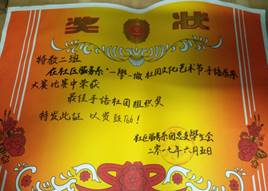 奖状
特教二班
在社区服务系“一学一做社团文化艺术节手语操舞
大赛比赛中荣获
最佳手语社团组织奖
特发此证 以资鼓励!
社区服务系团总支学生会
二〇一七年六月五日